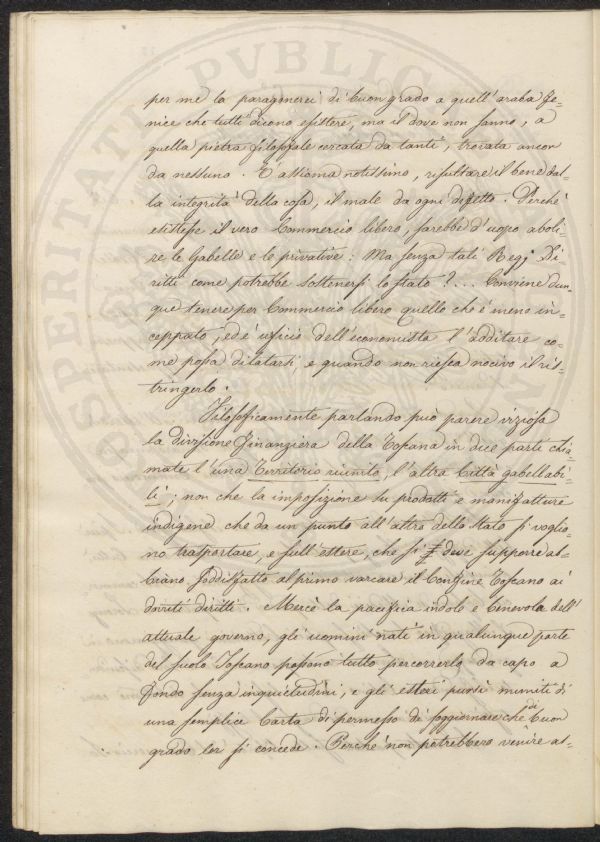 per me lo paragonerei di buon grado a quell' araba Fe=
nice che tutti dicono esistere, ma il dove non sanno, a
quella pietra filosofale cercata da tanti, trovata ancor
da nessuno. È assioma notissimo, risultare il bene dal=
la integrità della cosa, il male da ogni difetto. Perchè
esistesse il vero Commercio libero, sarebbe d'uopo aboli=
re le Gabelle e le privative: Ma senza tali Regj Di=
ritti come potrebbe sostenersi lo stato?... Conviene dun=
que tenere per Commercio libero quello che è meno in=
ceppato, ed è uficio dell' economista l'additare co=
me possa dilatarsi, e quando non riesca nocivo il ris=
tringerlo.
Filosoficamente parlando può parere viziosa
la divisione Finanziera della Toscana in due parti chia=
mate l'una Territorio riunito, l'altra Città gabellabi=
li; non che la imposizione su prodotti e manifatture
indigene che da un punto all'altro dello stato si voglio=
no trasportare, e sull'estere, che si deve supporre ab=
biano soddisfatto al primo varcare il Confine Toscano ai
dovuti diritti. Mercè la pacifica indole e benevola dell'
attuale governo, gli uomini nati in qualunque parte
del suolo Toscano possono tutto percorrerlo da capo a
fondo senza inquietudini, e gli esteri purchè muniti di
una semplice Carta di permesso di soggiornare che di buon
grado lor si concede. Perchè non potrebbero venire as=